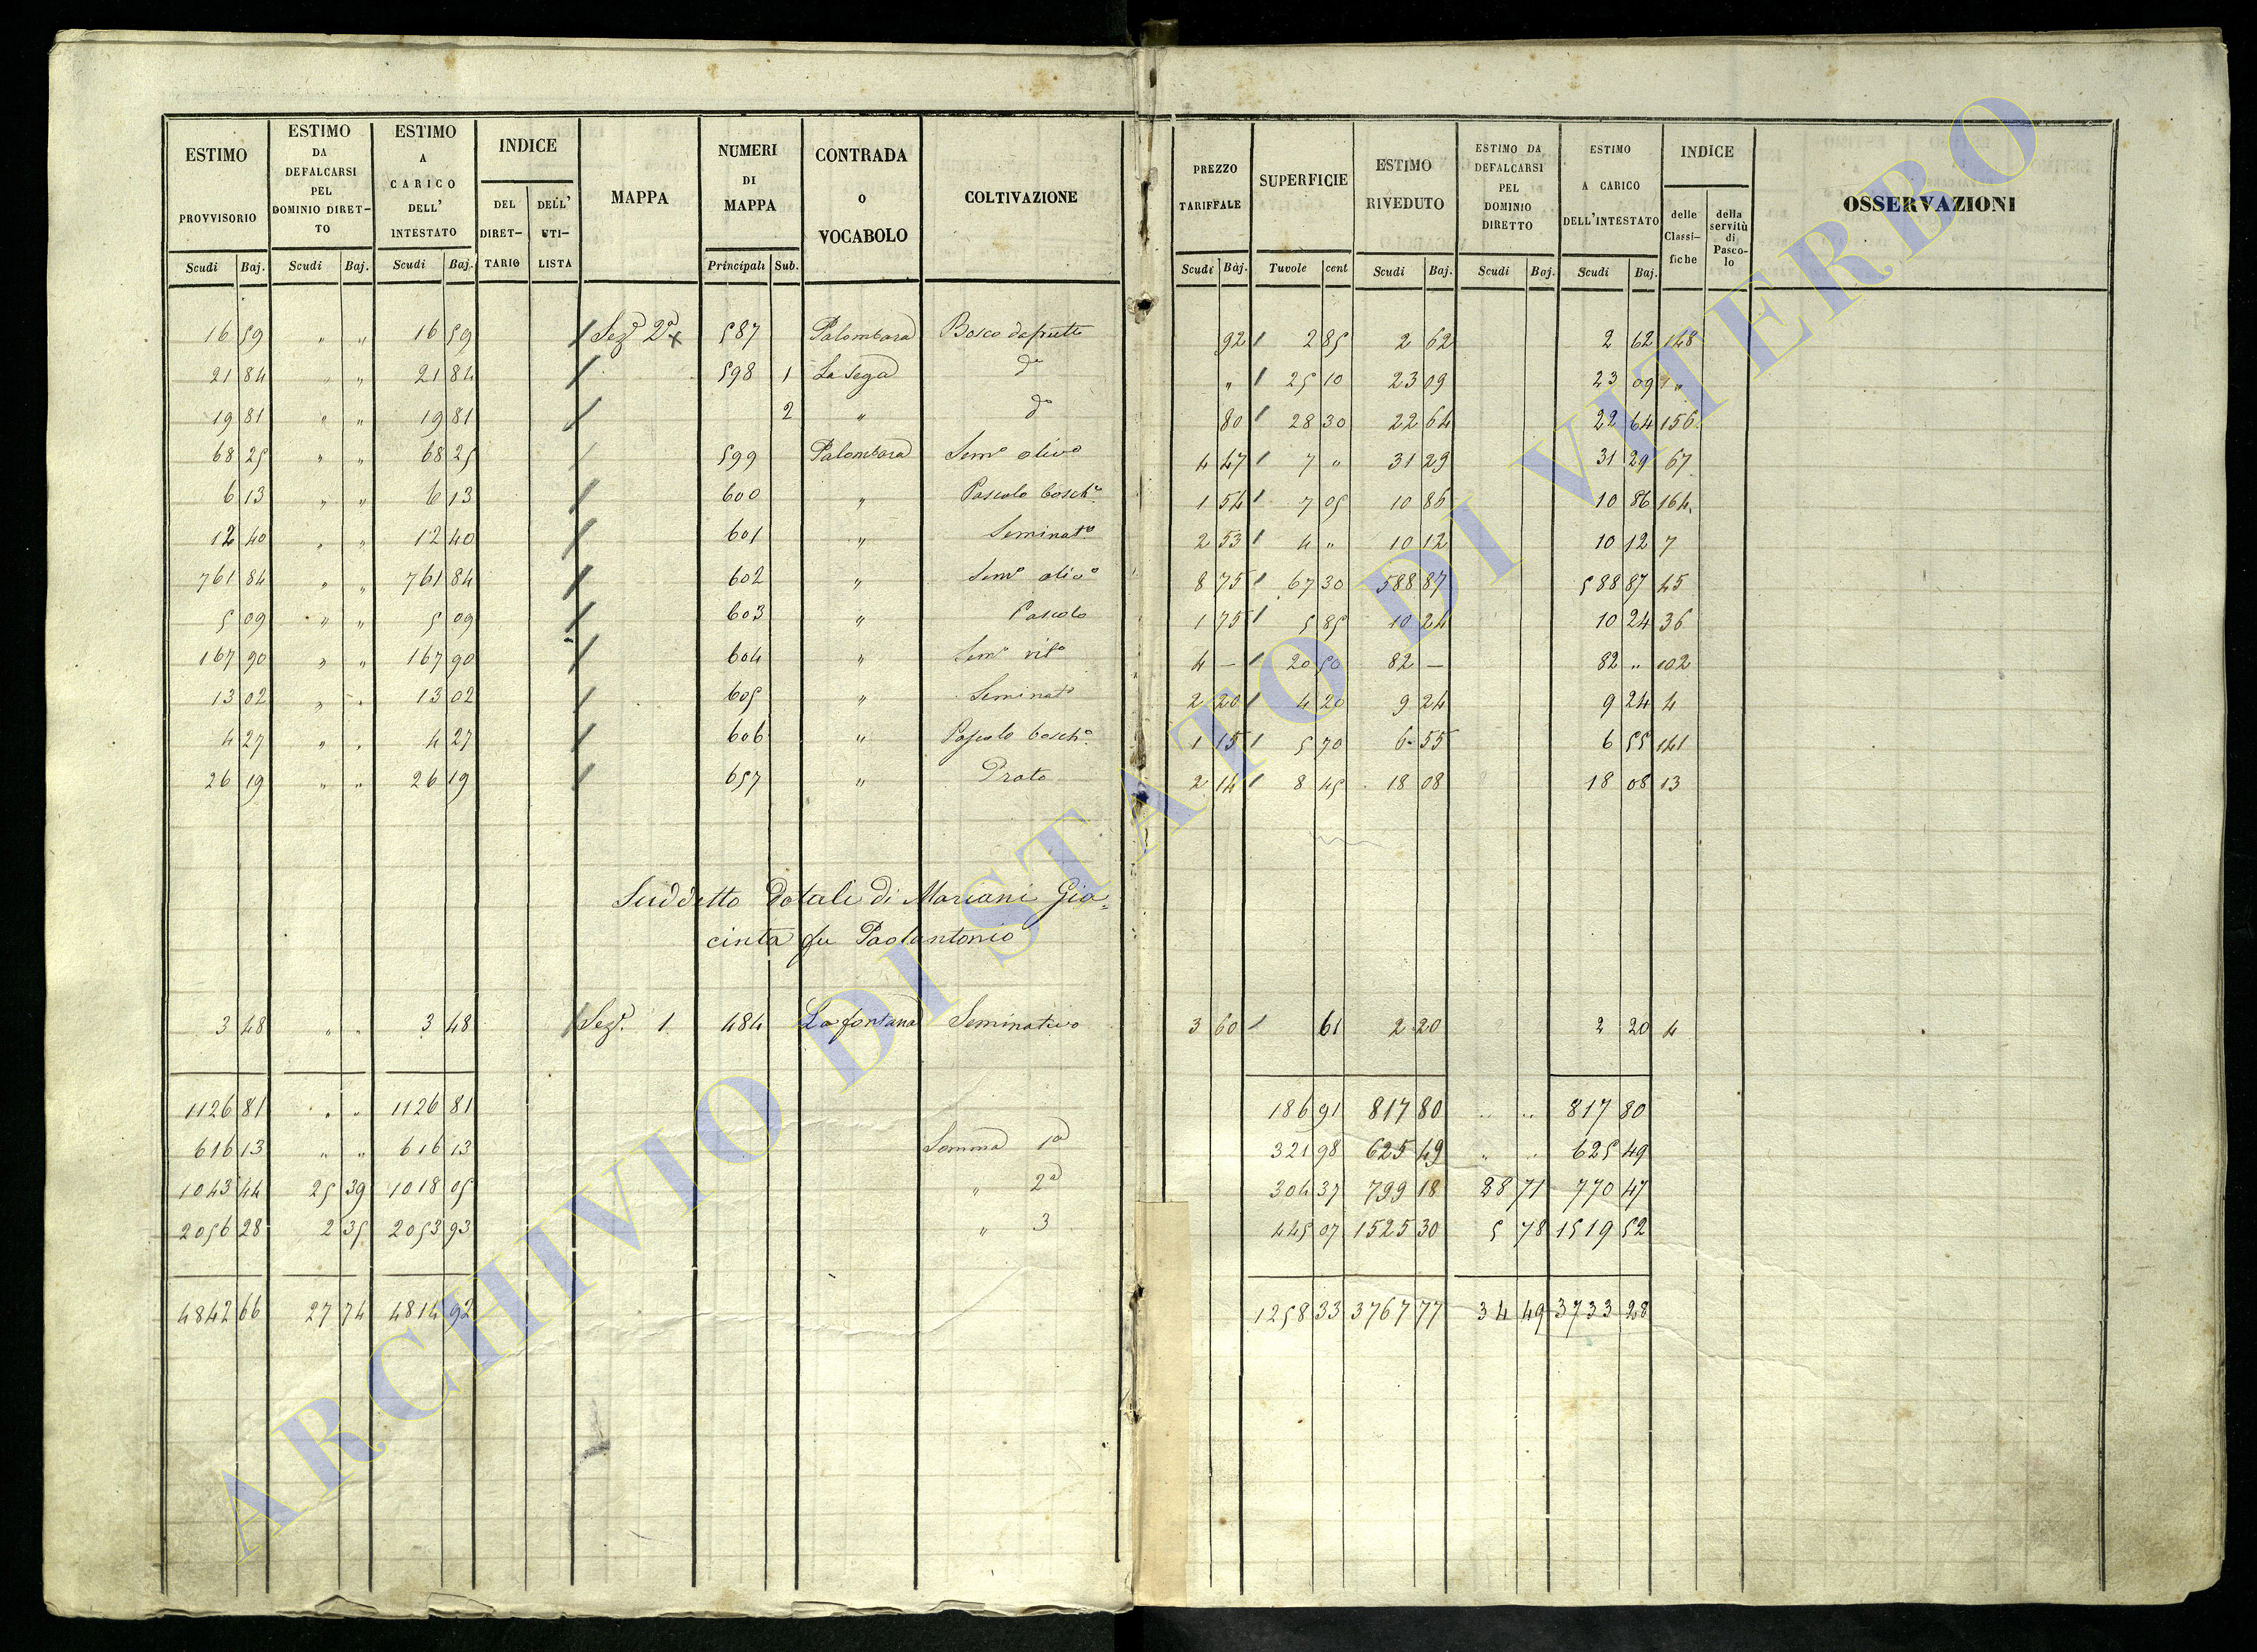 ESTIMO PROVVISORIO Scudi Baj.
ESTIMO DA DEFALCARSI PEL DOMINIO DIRET- TO Scudi Baj.
ESTIMO A CARICO DELL' INTESTATO Scudi Baj.
INDICE DEL DIRET- TARIO DELL' UTI- LISTA
MAPPA
NUMERI DI MAPPA Principali Sub.
CONTRADA O VOCABOLO
COLTIVAZIONE
PREZZO TARIFFALE Scudi Baj.
SUPERFICIE Tavole cent
ESTIMO RIVEDUTO Scudi Baj.
ESTIMO DA DEFALCARSI PEL DOMINIO DIRETTO Scudi Baj.
ESTIMO A CARICO DELL'INTESTATO Scudi Baj.
INDICE delle Classi- fiche della servitù di Pasco- lo
OSSERVAZIONI
16 59 " " 16 59 / Sezᵉ 2ª x 587 Palombara Bosco da frutto 92 / 2 85 2 62 2 62 148
21 84 " " 21 84 / 598 1 La Sega dº " / 25 10 23 09 23 09 "
19 81 " " 19 81 / 2 " dº 80 / 28 30 22 64 22 64 156
68 25 " " 68 25 / 599 Palombara Semº olivº 4 47 / 7 " 31 29 31 29 67
6 13 " " 6 13 / 600 " Pascolo boschº 1 54 / 7 05 10 86 10 86 164
12 40 " " 12 40 / 601 " Seminatº 2 53 / 4 " 10 12 10 12 7
761 84 " " 761 84 / 602 " Semº olivº 8 75 / 67 30 588 87 588 87 45
5 09 " " 5 09 / 603 " Pascolo 1 75 / 5 85 10 24 10 24 36
167 90 " " 167 90 / 604 " Semº vitº 4 — / 20 50 82 — 82 " 102
13 02 " " 13 02 / 605 " Seminatº 2 20 / 4 20 9 24 9 24 4
4 27 " " 4 27 / 606 " Pascolo boschº 1 15 / 5 70 6 55 6 55 141
26 19 " " 26 19 / 657 " Prato 2 14 / 8 45 18 08 18 08 13
Suddetto Dotali di Mariani Gia=
cinta fu Paolantonio
3 48 " " 3 48 / Sezᵉ 1 484 La fontana Seminativo 3 60 / 61 2 20 2 20 4
1126 81 " " 1126 81 186 91 817 80 " " 817 80
616 13 " " 616 13 Somma 1ª 321 98 625 49 " " 625 49
1043 44 25 39 1018 05 " 2ª 304 37 799 18 28 71 770 47
2056 28 2 35 2053 93 " 3 445 07 1525 30 5 78 1519 52
4842 66 27 74 4814 92 1258 33 3767 77 34 49 3733 28
ARCHIVIO DI STATO DI VITERBO